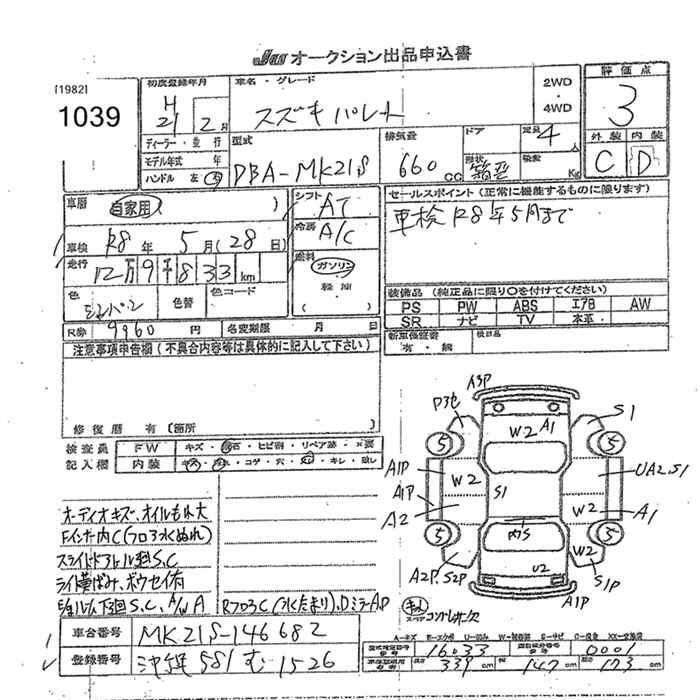 JU オークション出品申込書
[1982]
1039
初度登録年月
H 21 2月
車名・グレード
スズキパレット
2WD
・
4WD
評価点
3
ディーラー・並行
モデル年式 年
ハンドル 左・右
型式
DBA-MK21S
排気量
660 CC
ドア
形状
箱型
定員 4 人
積載 Kg
外装 内装
C D
車歴
自家用
車検 R8年5月(28日)
走行 12万9千833km
色
シャンパン
色替
色コード
R券 9960 円
名変期限 月 日
シフト AT
冷房 A/C
燃料
ガソリン
軽油
セールスポイント(正常に機能するものに限ります)
車検R8年5月まで
装備品(純正品に限り○を付けてください)
PS PW ABS エアB AW
SR ナビ TV 本革
新車保証書
有・無
注意事項申告欄(不具合内容等は具体的に記入して下さい)
修復歴 有〔箇所 〕
検査員
記入欄
FW キズ・飛石・ヒビ割・リペア跡・×要
内装 キズ・汚れ・コゲ・穴・スレ・キレ・欠し
オーディオキズ、オイルもれ大
Fインナー内C(フロアぬれ)
スライドドアレール到S,C
ライト黄ばみ、ボウセイ有
A3P
P3ヒ
S1
W2 A1
5
5
A1P
W2
UA2.S1
A1P
S1
A2
W2
A1
5
内S
5
W2
A2P,S2P
U2
S1P
A1P
A-キズ E-エクボ U-凹み W-補修跡 S-サビ C-腐食 XX-交換済
車台番号 MK21S-146682
登録番号 沖縄 581 む ・1526
型式指定番号 16033
類別区分番号 0001
長さ 339 cm 幅 147 cm 高さ 173 cm